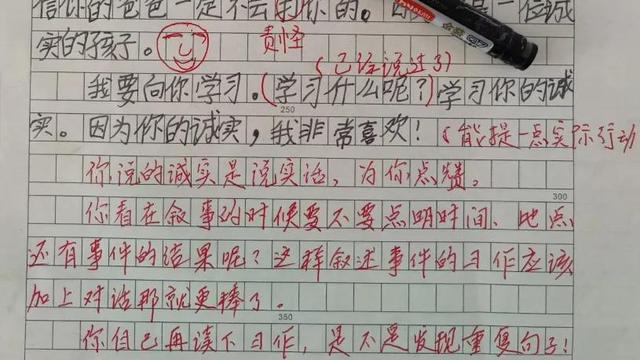 信你的爸爸一定不会
实的孩子。
责怪
(已经说过了)
我要向你学习。(学习什么呢?)学习你的诚
250
实。因为你的诚实,我非常喜欢!(能提一点实际行动
你说的诚实是说实话,为你点赞。
300
你看在叙事的时候要不要点明时间、地点
还有事件的结果呢?这样叙述事件的习作应该
加上对话那就更棒了。
350
你自己再读下习作,是不是发现重复句子!